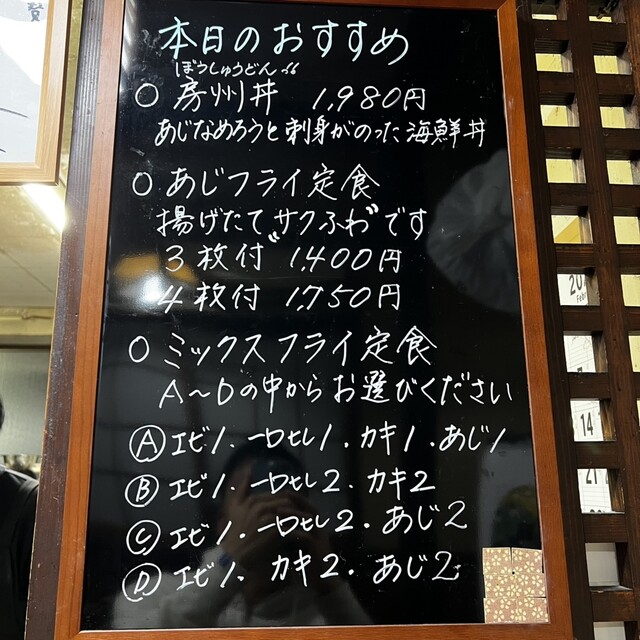 本日のおすすめ
ぼうしゅうどん
○ 房州丼 1,980円
あじなめろうと刺身がのった海鮮丼
○ あじフライ定食
揚げたて"サクふわ"です
3枚付 1,400円
4枚付 1,750円
○ ミックスフライ定食
A〜Dの中からお選びください
Ⓐ エビ1.一口ヒレ1.カキ1.あじ1
Ⓑ エビ1.一口ヒレ2.カキ2
Ⓒ エビ1.一口ヒレ2.あじ2
Ⓓ エビ1.カキ2.あじ2
20
Feb
14
21